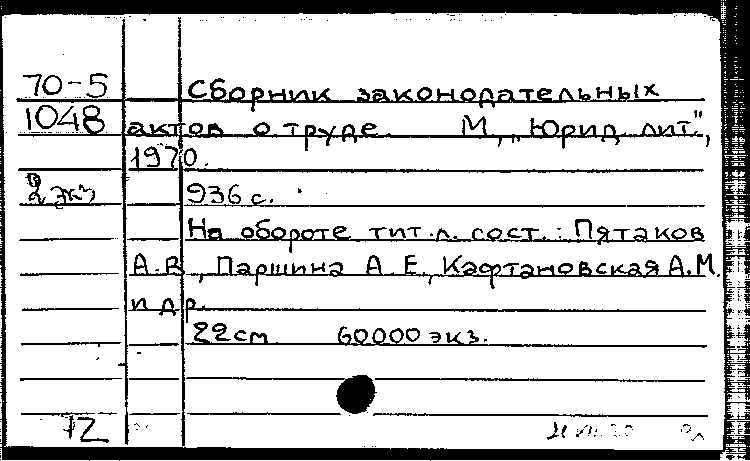 70-5 Сборник законодательных
1048 актов о труде. М., „Юрид. лит.",
1970.
2 экз 936 с.
На обороте тит. л. сост.: Пятаков
А.В., Паршина А.Е., Кафтановская А.М.
и др.
22 см 60000 экз.
72